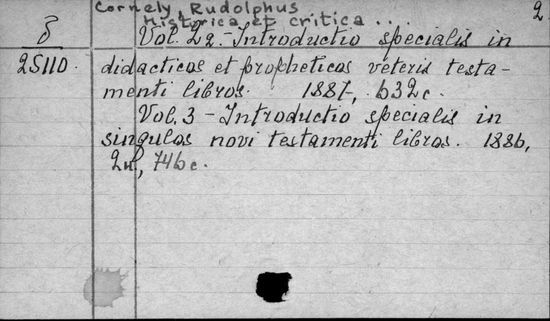 Cornely, Rudolphus 2
Historica et critica ...
Vol. 2₂.-Introductio specialis in
25110. didacticos et propheticos veteris testa-
menti libros. 1887, 632 c.
Vol. 3 - Introductio specialis in
singulos novi testamenti libros. 1886,
746 c.